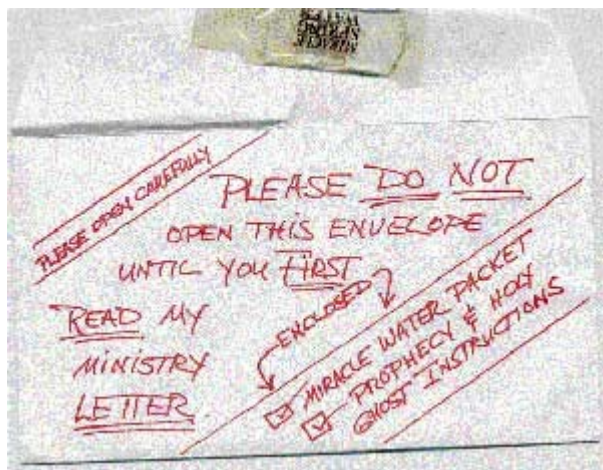 MIRACLE
SPRING
WATER
PLEASE OPEN CAREFULLY
PLEASE DO NOT
OPEN THIS ENVELOPE
UNTIL YOU FIRST
READ MY
MINISTRY
LETTER
ENCLOSED
MIRACLE WATER PACKET
PROPHECY & HOLY
GHOST INSTRUCTIONS